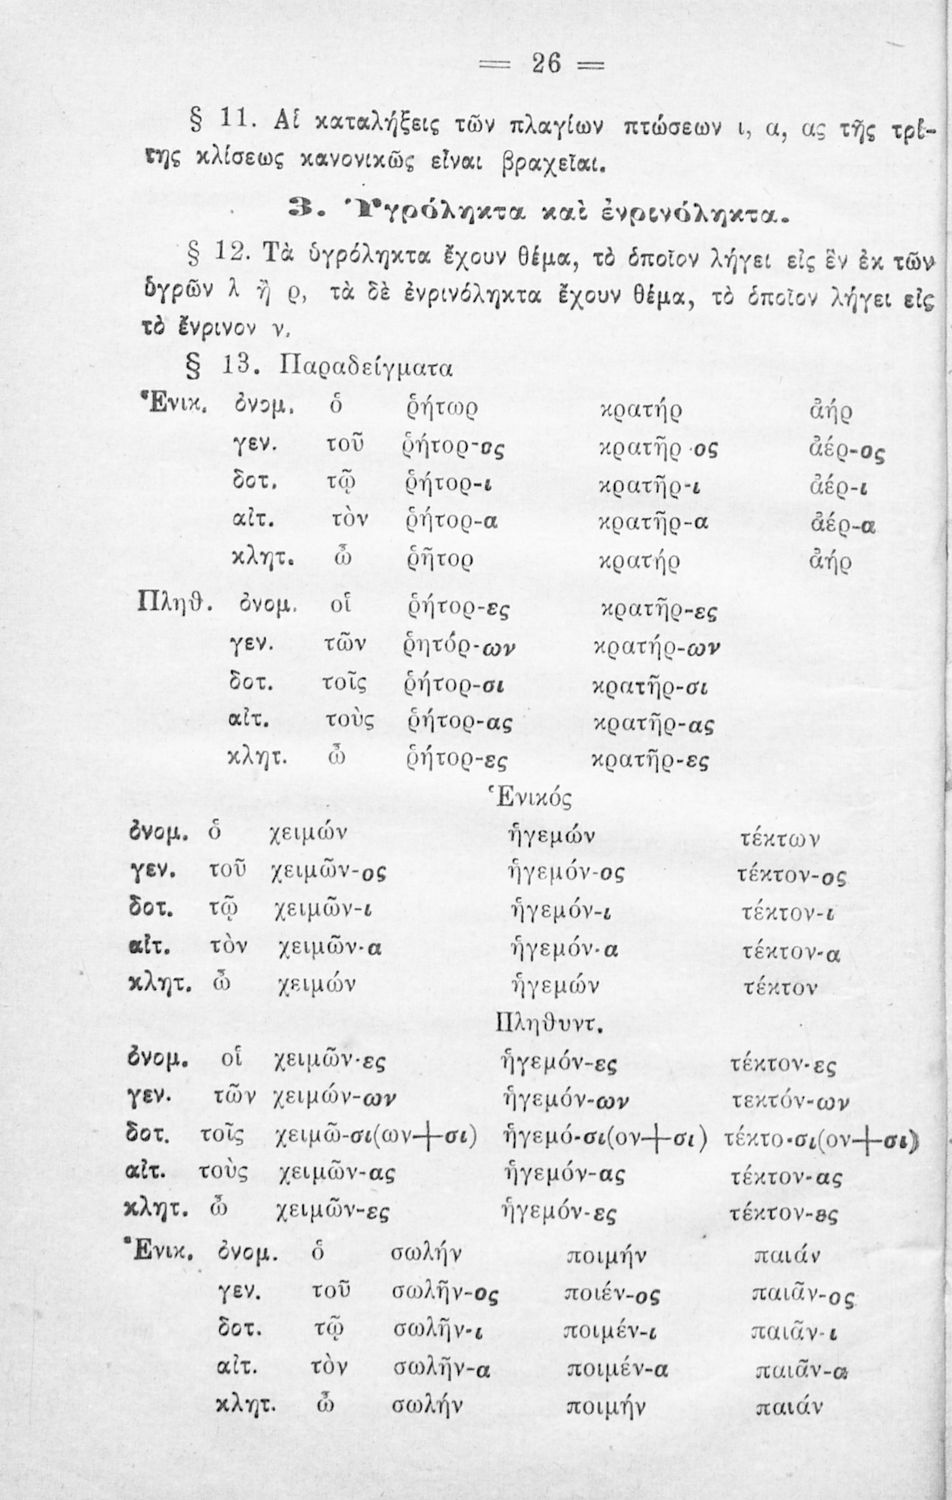 = 26 =
§ 11. Αἱ καταλήξεις τῶν πλαγίων πτώσεων ι, α, ας τῆς τρί-
της κλίσεως κανονικῶς εἶναι βραχεῖαι.
3. Ὑγρόληκτα καὶ ἐνρινόληκτα.
§ 12. Τὰ ὑγρόληκτα ἔχουν θέμα, τὸ ὁποῖον λήγει εἰς ἓν ἐκ τῶν
ὑγρῶν λ ἢ ρ, τὰ δὲ ἐνρινόληκτα ἔχουν θέμα, τὸ ὁποῖον λήγει εἰς
τὸ ἔνρινον ν.
§ 13. Παραδείγματα
Ἑνικ. ὀνομ. ὁ ῥήτωρ κρατήρ ἀήρ
γεν. τοῦ ῥήτορ-ος κρατῆρ-ος ἀέρ-ος
δοτ. τῷ ῥήτορ-ι κρατῆρ-ι ἀέρ-ι
αἰτ. τὸν ῥήτορ-α κρατῆρ-α ἀέρ-α
κλητ. ὦ ῥῆτορ κρατήρ ἀήρ
Πληθ. ὀνομ. οἱ ῥήτορ-ες κρατῆρ-ες
γεν. τῶν ῥητόρ-ων κρατήρ-ων
δοτ. τοῖς ῥήτορ-σι κρατῆρ-σι
αἰτ. τοὺς ῥήτορ-ας κρατῆρ-ας
κλητ. ὦ ῥήτορ-ες κρατῆρ-ες
Ἑνικός
ὀνομ. ὁ χειμών ἡγεμών τέκτων
γεν. τοῦ χειμῶν-ος ἡγεμόν-ος τέκτον-ος
δοτ. τῷ χειμῶν-ι ἡγεμόν-ι τέκτον-ι
αἰτ. τὸν χειμῶν-α ἡγεμόν-α τέκτον-α
κλητ. ὦ χειμών ἡγεμών τέκτον
Πληθυντ.
ὀνομ. οἱ χειμῶν-ες ἡγεμόν-ες τέκτον-ες
γεν. τῶν χειμών-ων ἡγεμόν-ων τεκτόν-ων
δοτ. τοῖς χειμῶ-σι(ων+σι) ἡγεμό-σι(ον+σι) τέκτο-σι(ον+σι)
αἰτ. τοὺς χειμῶν-ας ἡγεμόν-ας τέκτον-ας
κλητ. ὦ χειμῶν-ες ἡγεμόν-ες τέκτον-ες
Ἑνικ. ὀνομ. ὁ σωλήν ποιμήν παιάν
γεν. τοῦ σωλῆν-ος ποιέν-ος παιᾶν-ος
δοτ. τῷ σωλῆν-ι ποιμέν-ι παιᾶν-ι
αἰτ. τὸν σωλῆν-α ποιμέν-α παιᾶν-α
κλητ. ὦ σωλήν ποιμήν παιάν